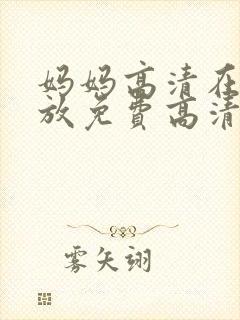 妈妈高清在
放免费高清
雾矢翊